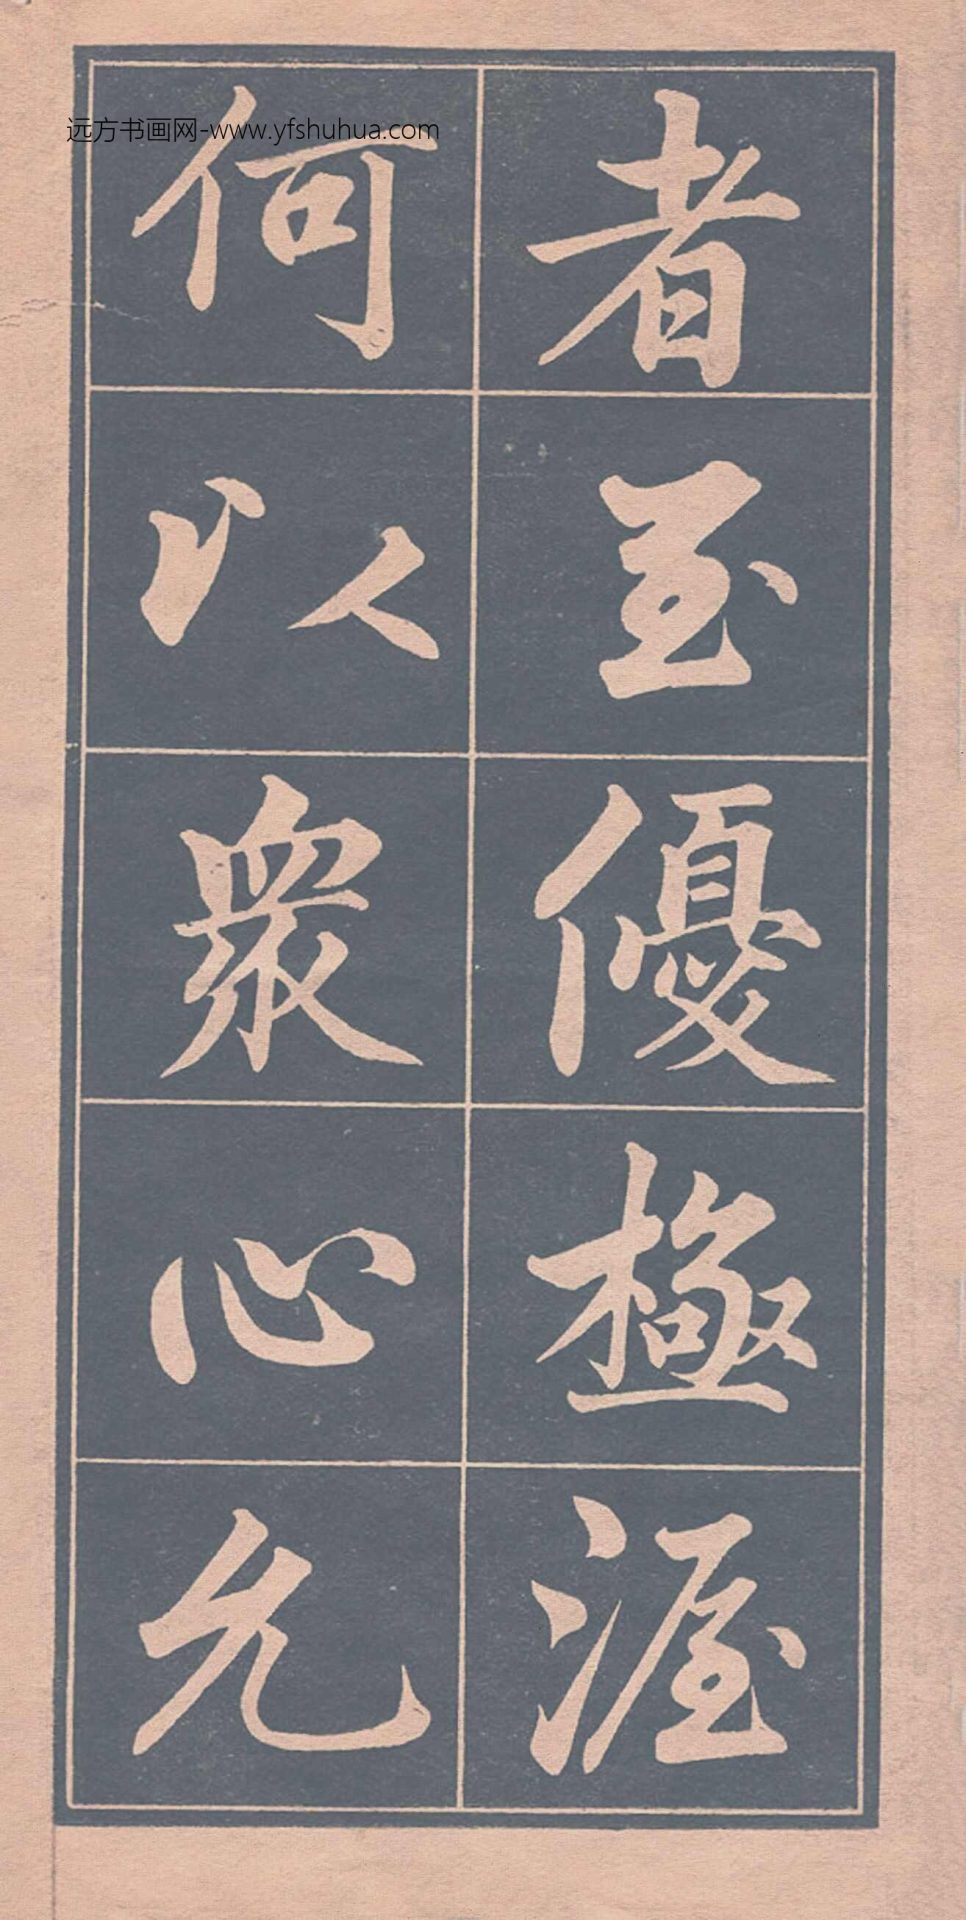 远方书画网-www.yfshuhua.com
者至優極渥
何以衆心允